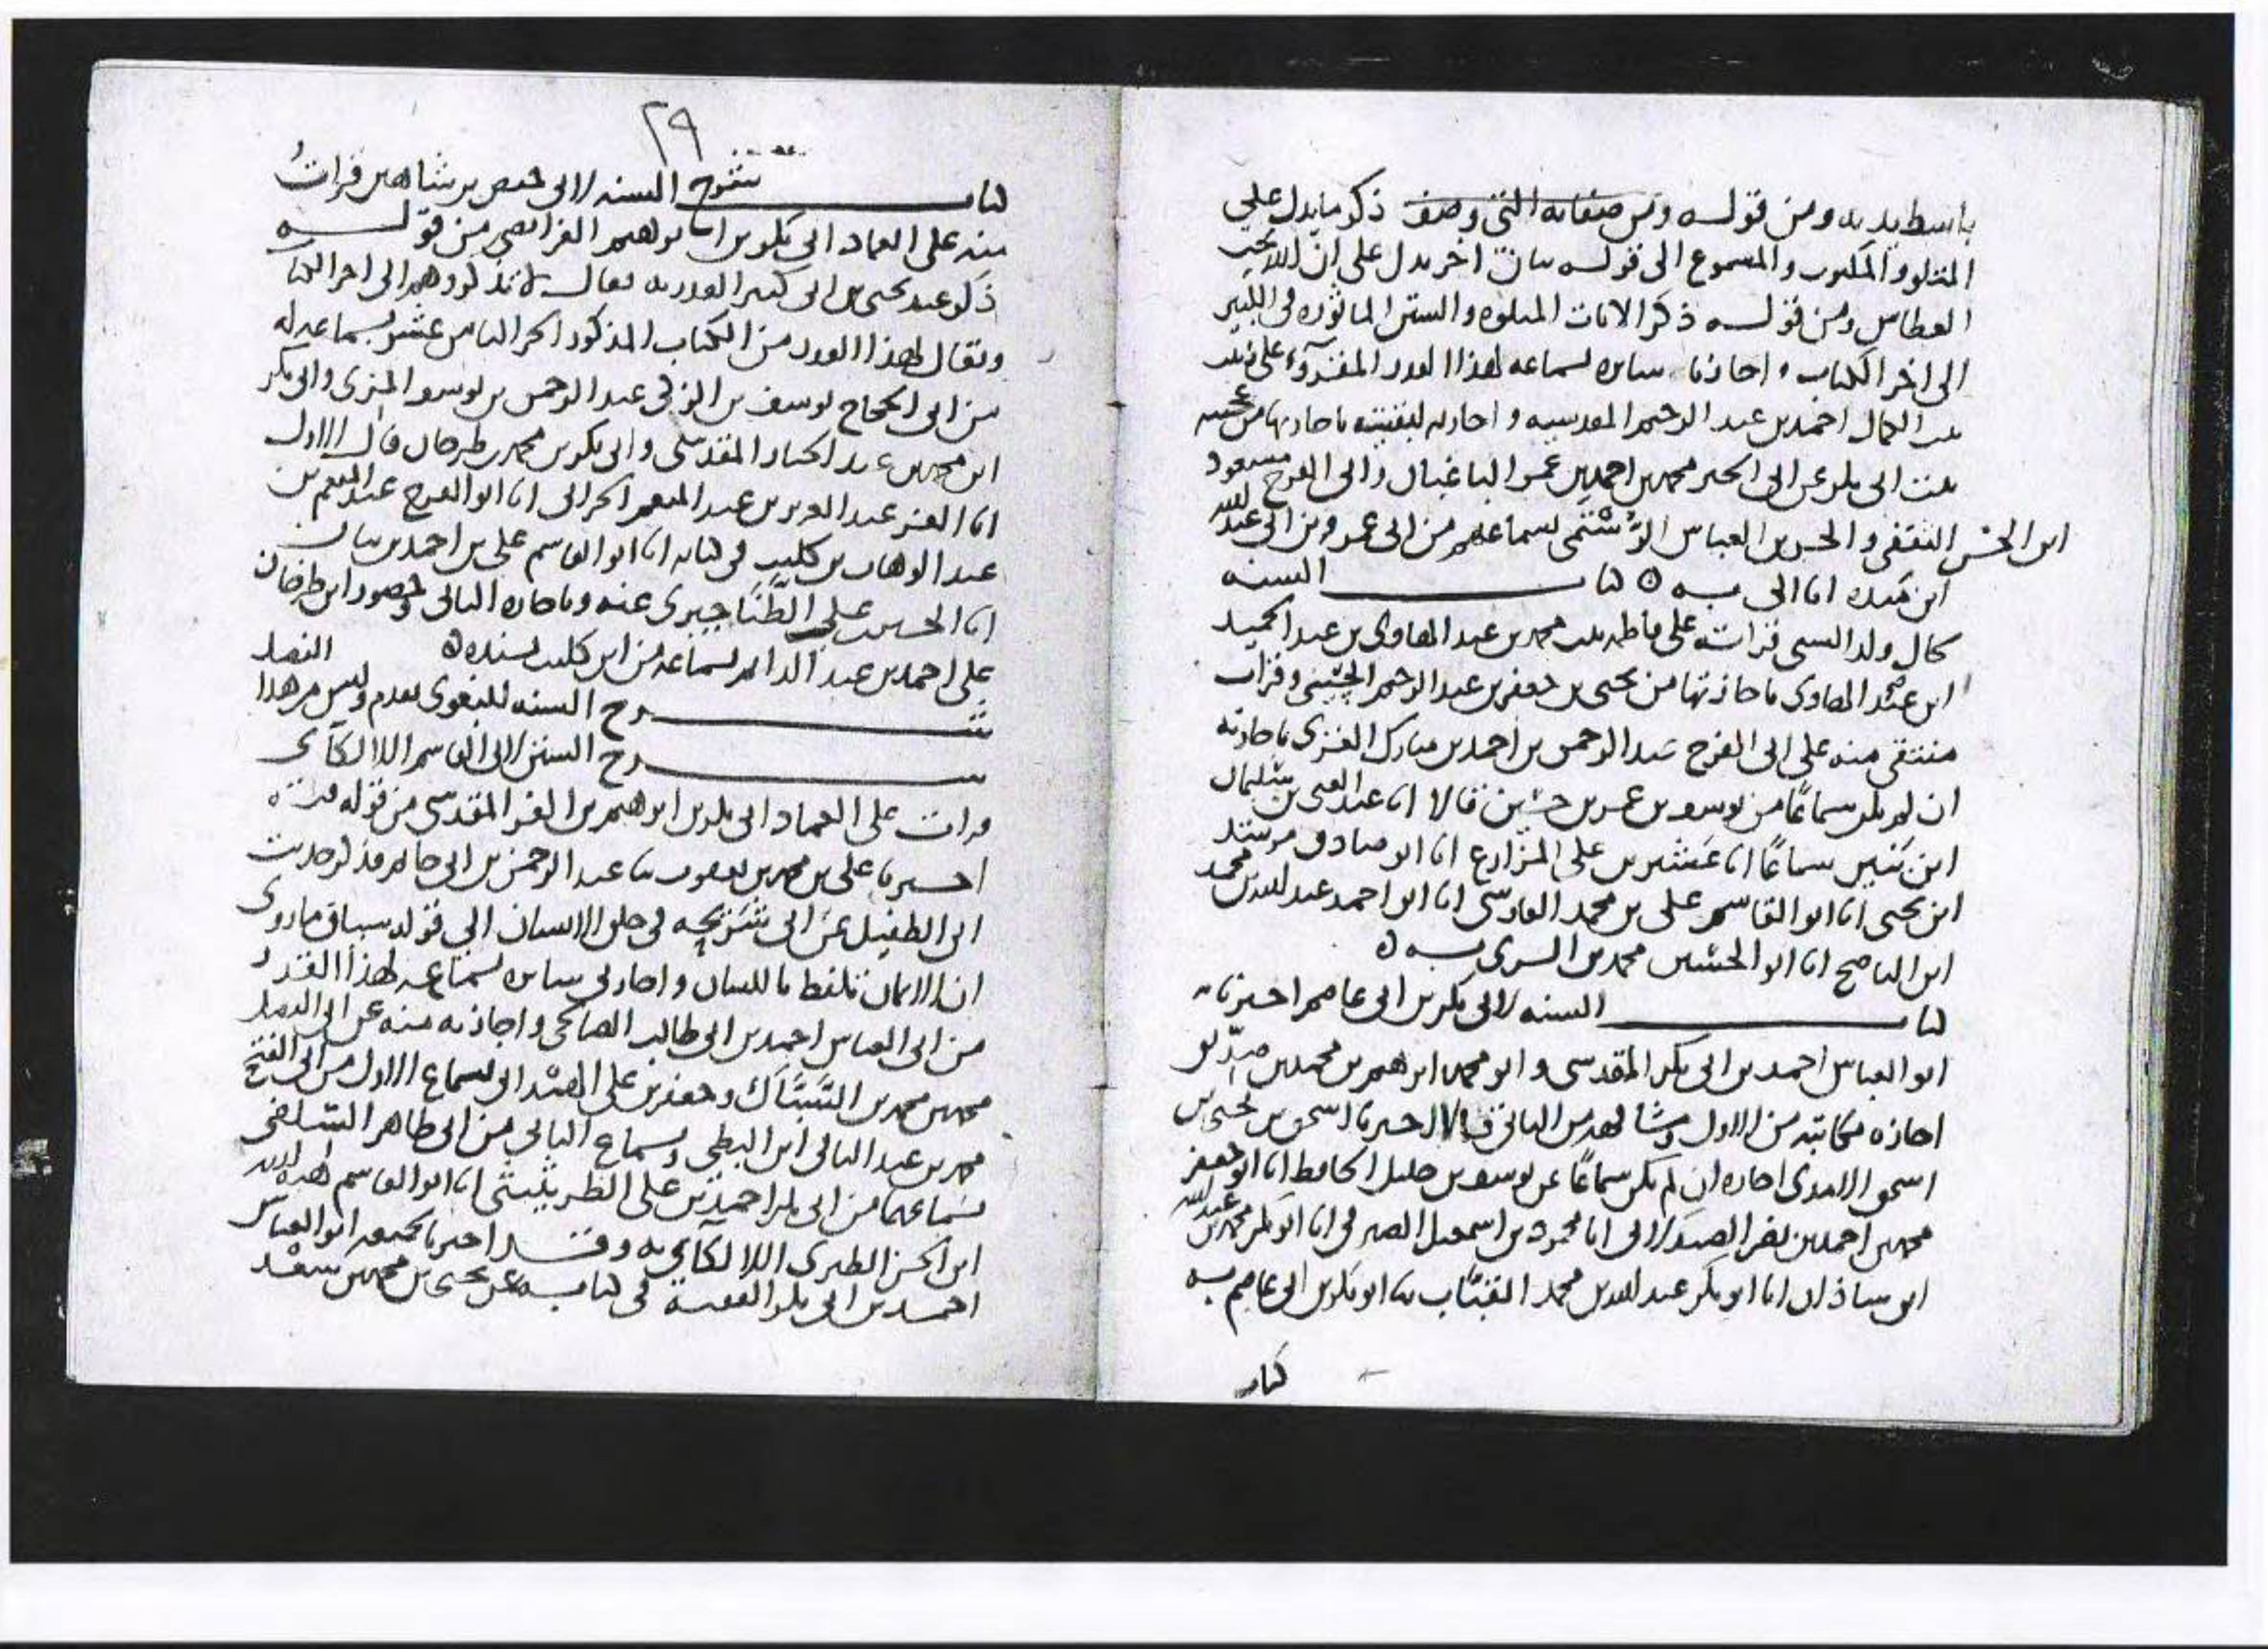 باسط يديه ومن قوله ومن صفاته التي وصف ذكر ما يدل على
المتلو والمكتوب والمسموع الى قوله بيان اخر يدل على ان الله يحب
العطاس ومن قوله ذكر الايات المتلوه والسنن الماثوره في
الى اخر الكتاب واجازنا سايره بسماعه لهذا القدر المقروء على زينب
بنت الكمال احمد بن عبد الرحيم المقدسيه واجازته لبقيته باجازتها من عجيبه
بنت ابي بكر عن ابي الخير محمد بن احمد بن عمر الباغبان وابي الفرج مسعود
ابن الحسن الثقفي والحسن بن العباس الرستمي بسماعهم من ابي عمرو بن ابي عبد الله
ابن منده انا ابي به ه كتاب السنه
كال ولد السني قراته على فاطمه بنت محمد بن عبد الهادي بن عبد الحميد
ابن عبد الهادي باجازتها من يحيى بن جعفر بن عبد الرحيم الحسني وقرات
منتقى منه على ابي الفرج عبد الرحمن بن احمد بن مبارك الغزي باجازته
ان لم يكن سماعا من يوسف بن عمر بن حسين قالا انا عبد الغني بن سليمان
ابن بنين سماعا انا عشير بن علي المزارع انا ابو صادق مرشد
ابن يحيى انا ابو القاسم علي بن محمد الفارسي انا ابو احمد عبد الله بن محمد
ابن الناصح انا ابو الحسين محمد بن السري به ه
كتاب السنه لابي بكر بن ابي عاصم اخبرنا به
ابو العباس احمد بن ابي بكر المقدسي وابو محمد ابرهيم بن محمد بن صديق
اجازه مكاتبه من الاول ومشافهه من الثاني قالا اخبرنا اسحق بن يحيى بن
اسحق الامدي اجازه ان لم يكن سماعا عن يوسف بن خليل الحافظ انا ابو جعفر
محمد بن احمد بن نصر الصيدلاني انا محمود بن اسمعيل الصيرفي انا ابو بكر محمد بن عبد الله
ابن شاذان انا ابو بكر عبد الله بن محمد القباب ثنا ابو بكر بن ابي عاصم به
كتاب
٢٩
كتاب شرح السنه لابي حفص بن شاهين قرات
منه على العماد ابي بكر بن ابرهيم الفرايضي من قوله
ذكر عبد يحيى بن ابي كثير القدريه فقال لا تذكروهم الى اخر الكتاب
ويقال لهذا القدر من الكتاب المذكور الجزء الثامن عشر بسماعه له
من ابي الحجاج يوسف بن الزكي عبد الرحمن بن يوسف المزي وابي بكر
ابن محمد بن عبد الجبار المقدسي وابي بكر بن محمد بن طرخان قال الاول
انا العز عبد العزيز بن عبد المنعم الحراني انا ابو الفرج عبد المنعم بن
عبد الوهاب بن كليب في كتابه انا ابو القاسم علي بن احمد بن بيان
انا الحسين علي الطناجيري عنه وباجازه الثاني وحضور ابن طرخان
على احمد بن عبد الدايم بسماعه من ابن كليب بسنده ه
شرح السنه للبغوي تقدم وليس من هذا
شرح السنن لابي القاسم اللالكائي
قرات على العماد ابي بكر بن ابرهيم بن العز المقدسي من قوله فيه
اخبرنا علي بن محمد بن يعقوب ثنا عبد الرحمن بن ابي حاتم فذكر حديث
ابي الطفيل عن ابي سريحه في خلق الانسان الى قوله سياق ما روي
ان الايمان تلفظ باللسان واجاز لي سايره بسماعه لهذا القدر
من ابي العباس احمد بن ابي طالب الصالحي واجازته منه عن ابي الفضل
محمد بن محمد بن السباك وجعفر بن علي الهمداني بسماع الاول من ابي الفتح
محمد بن عبد الباقي ابن البطي وبسماع الثاني من ابي طاهر السلفي
بسماعهما من ابي بكر احمد بن علي الطريثيثي انا ابو القاسم هبه الله
ابن الحسن الطبري اللالكائي به وقد اخبرنا بجميعه ابو العباس
احمد بن ابي بكر الفقيه في كتابه عن يحيى بن محمد بن سعد